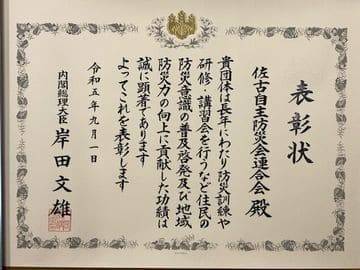 表彰状
佐古自主防災会連合会 殿
貴団体は長年にわたり防災訓練や
研修・講習会を行うなど住民の
防災意識の普及啓発及び地域
防災力の向上に貢献した功績は
誠に顕著であります
よってこれを表彰します
令和五年九月一日
内閣総理大臣 岸田文雄